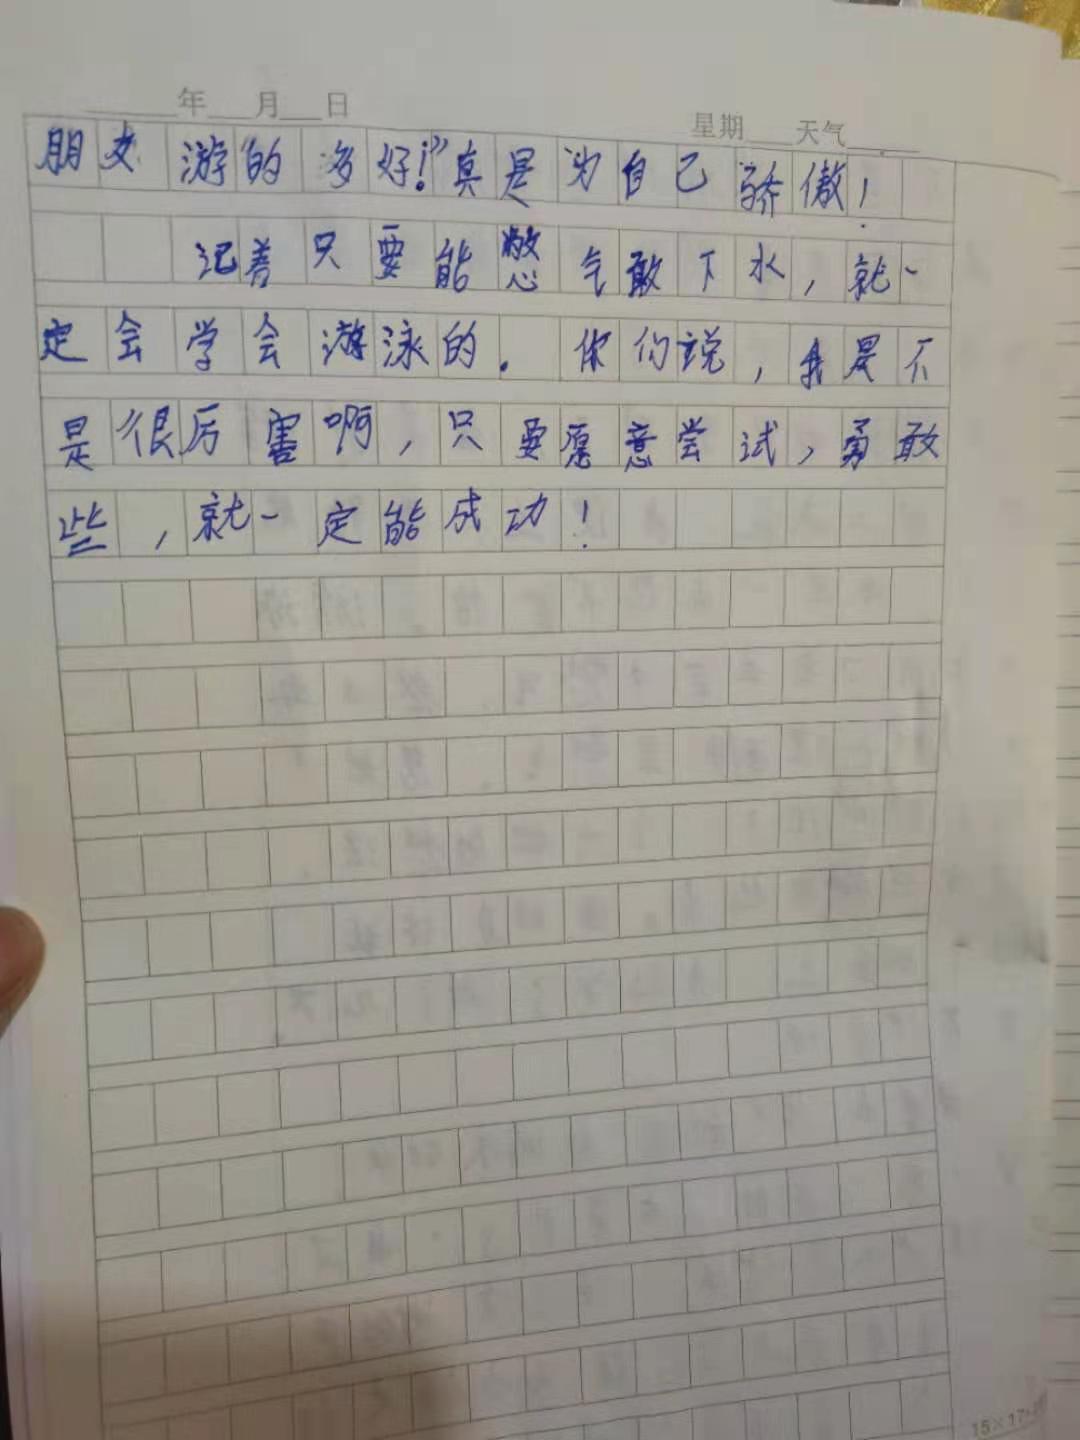 年 月 日 星期 天气
朋友游的多好！”真是为自己骄傲！
记着只要能憋气敢下水，就一
定会学会游泳的。你们说，我是不
是很厉害啊，只要愿意尝试，勇敢
些，就一定能成功！